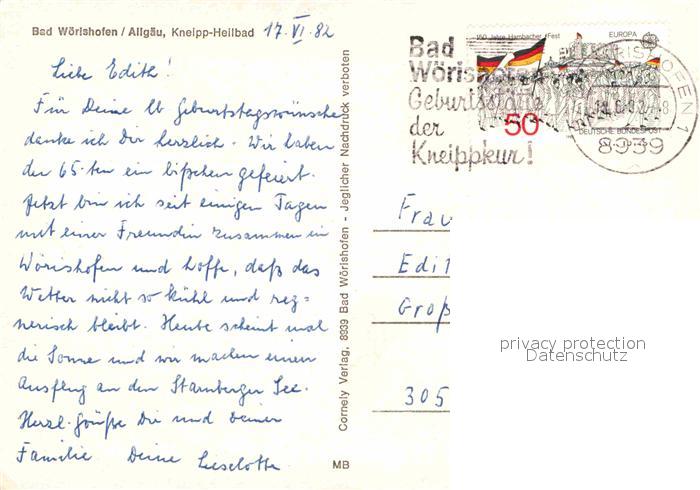 Bad Wörishofen / Allgäu, Kneipp-Heilbad
17. VI. 82
Liebe Edith!
Für Deine lb Geburtstagswünsche
danke ich Dir herzlich. Wir haben
den 65-ten ein bißchen gefeiert.
Jetzt bin ich seit einigen Tagen
mit einer Freundin zusammen in
Wörishofen und hoffe, daß das
Wetter nicht so kühl und reg=
nerisch bleibt. Heute scheint mal
die Sonne und wir machen einen
Ausflug an den Starnberger See.
Herzl. Grüße Dir und Deiner
Familie Deine Lieselotte
Cornely Verlag, 8939 Bad Wörishofen - Jeglicher Nachdruck verboten
MB
150 Jahre Hambacher Fest
EUROPA
50
DEUTSCHE BUNDESPOST
Bad
Wörishofen
Geburtsstätte
der
Kneippkur!
WÖRISHOFEN 1
8939
Frau
Edit
Groß
305
privacy protection
Datenschutz